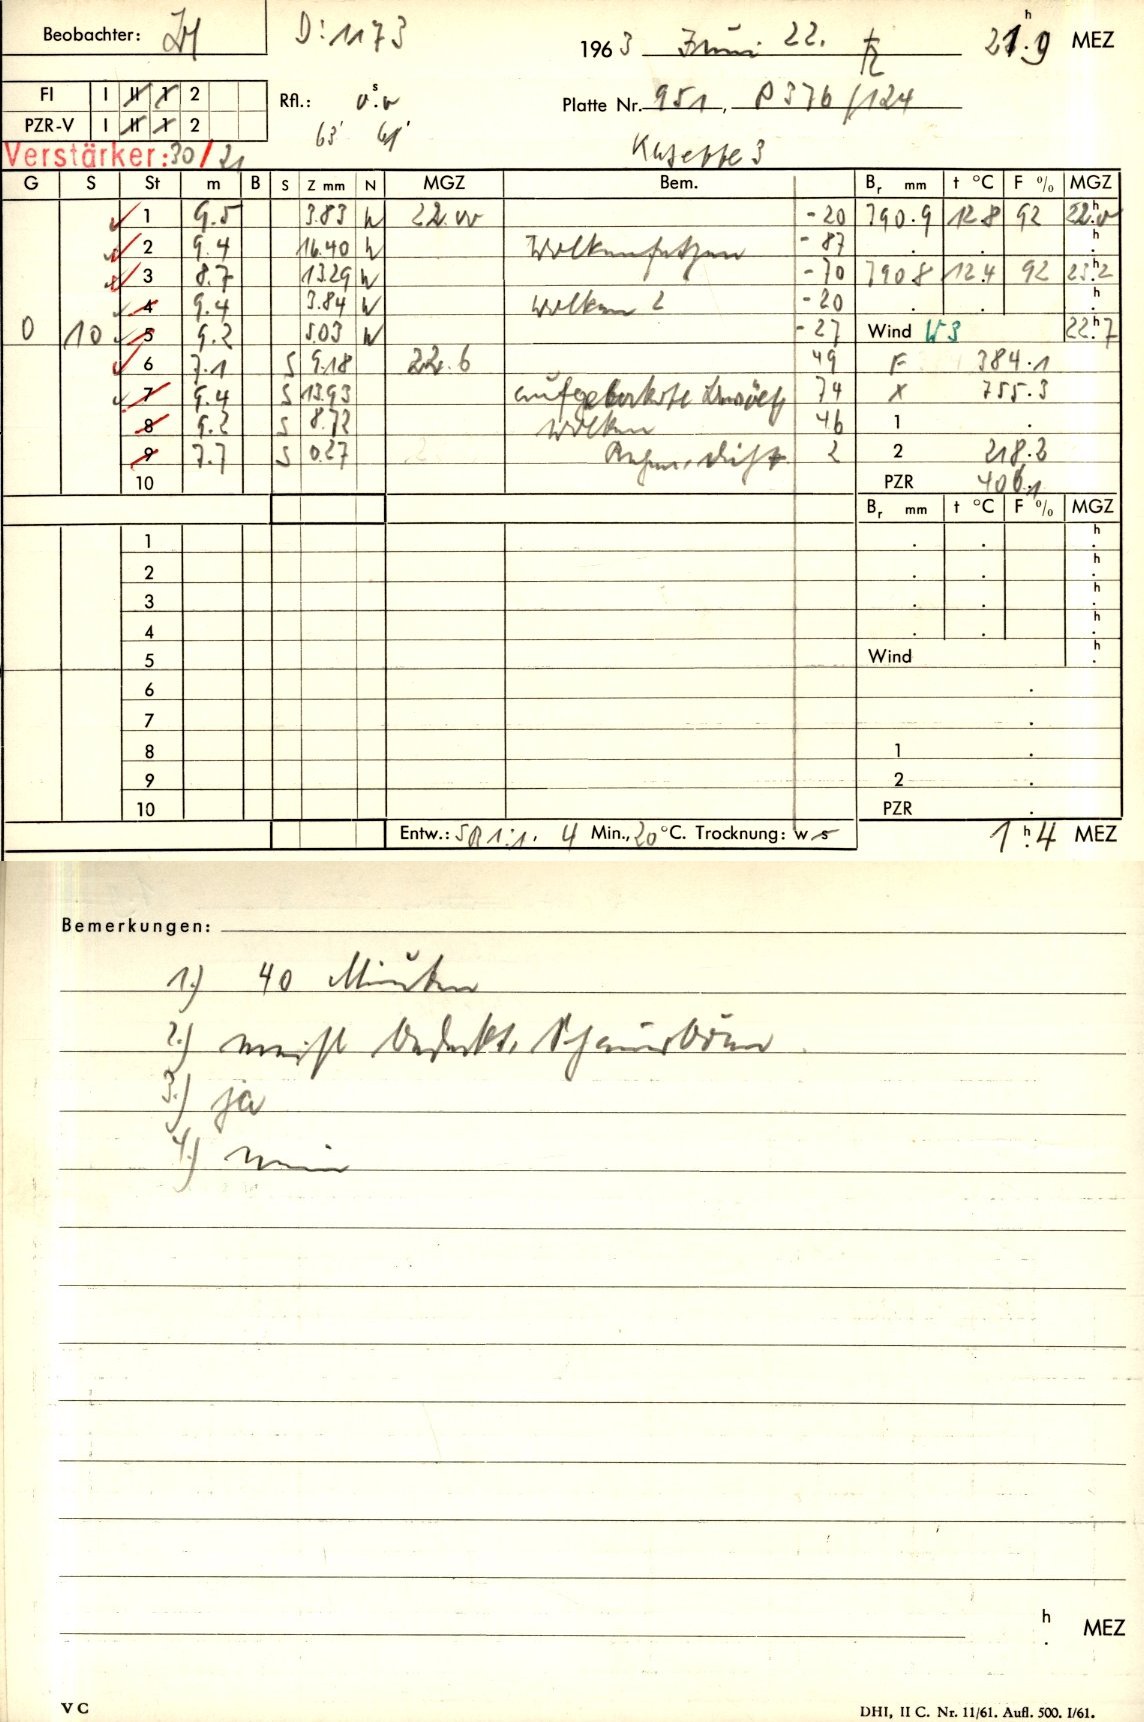 Beobachter: D: 1173 1963 Juni 22. 21.9 h MEZ
FI I II 1 2 Rfl.: Platte Nr. 951, P376/124
PZR-V I II 1 2 63' 61'
Verstärker: 30/21 Kasette 3
G S St m B S Z mm N MGZ Bem. Br mm t °C F % MGZ
1 9.5 3.83 N 22.00 -20 790.9 12.8 92 22.0 h
2 9.4 16.40 N Wolkenfetzen -87 . . h
3 8.7 13.29 N -70 790.8 12.4 92 23.2
4 9.4 3.84 N Wolken 2 -20 . . h
0 10 5 9.2 5.03 N -27 Wind W3 22.7 h
6 7.1 S 9.18 22.6 49 F 384.1
7 9.4 S 13.93 74 x 755.3
8 9.2 S 8.72 Wolken 46 1 .
9 7.7 S 0.27 Regen, dicht 2 2 218.2
10 PZR 406.1
Br mm t °C F % MGZ
1 . . h
2 . . h
3 . . h
4 . . h
5 Wind h
6 .
7 .
8 1 .
9 2 .
10 PZR .
Entw.: 1:1, 4 Min., 20 °C. Trocknung: w s 1 h 4 MEZ
Bemerkungen:
1.) 40 Minuten
2.) meist bedeckt, Schauerböen
3.) ja
4.) nein
h MEZ
V C DHI, II C. Nr. 11/61. Aufl. 500. I/61.